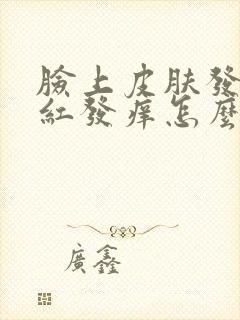 臉上皮肤發
紅發痒怎麼
廣鑫